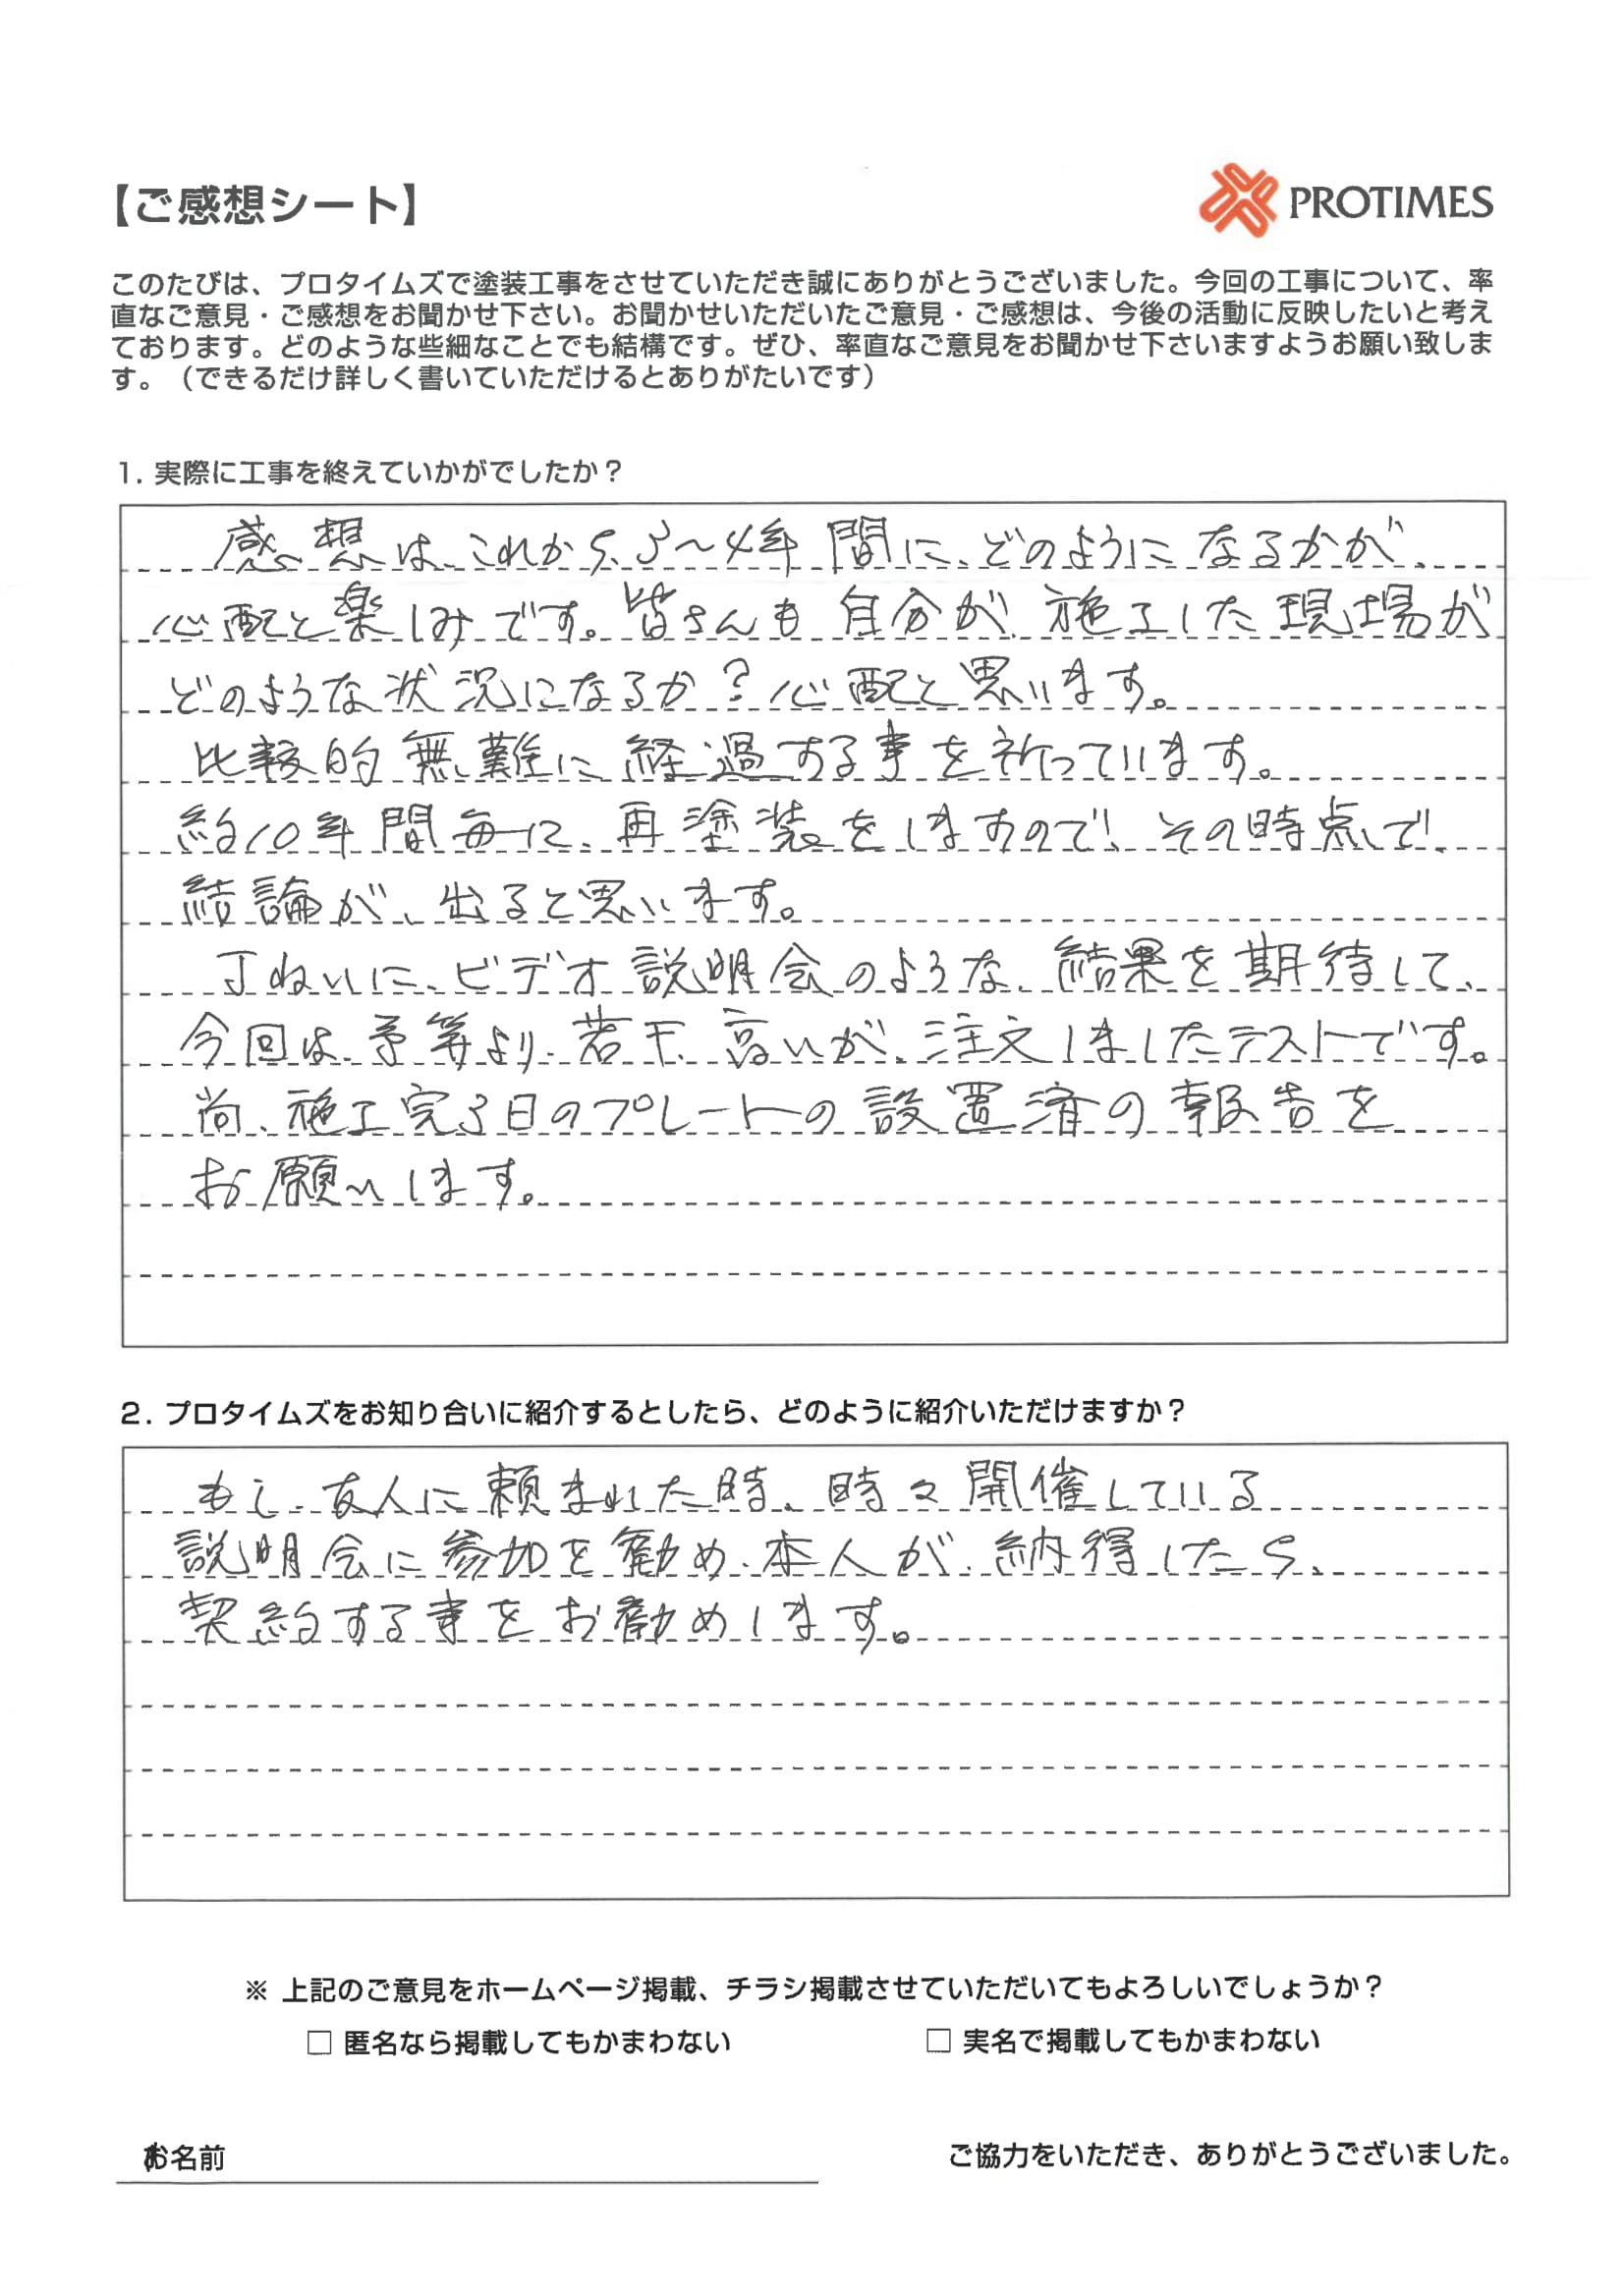 【ご感想シート】
PROTIMES
このたびは、プロタイムズで塗装工事をさせていただき誠にありがとうございました。今回の工事について、率
直なご意見・ご感想をお聞かせ下さい。お聞かせいただいたご意見・ご感想は、今後の活動に反映したいと考え
ております。どのような些細なことでも結構です。ぜひ、率直なご意見をお聞かせ下さいますようお願い致しま
す。（できるだけ詳しく書いていただけるとありがたいです）
1. 実際に工事を終えていかがでしたか？
感想は、これから、3～4年間に、どのようになるかが、
心配と楽しみです。皆さんも自分が、施工した現場が
どのような状況になるか？心配と思います。
比較的無難に経過する事を祈っています。
約10年間毎に、再塗装をしますので、その時点で、
結論が、出ると思います。
丁ねいに、ビデオ説明会のような、結果を期待して、
今回は、予算より、若干、高いが、注文しましたテストです。
尚、施工完了日のプレートの設置済の報告を
お願いします。
2. プロタイムズをお知り合いに紹介するとしたら、どのように紹介いただけますか？
もし、友人に頼まれた時、時々開催している
説明会に参加を勧め、本人が、納得したら、
契約する事をお勧めします。
※ 上記のご意見をホームページ掲載、チラシ掲載させていただいてもよろしいでしょうか？
□ 匿名なら掲載してもかまわない □ 実名で掲載してもかまわない
お名前
ご協力をいただき、ありがとうございました。